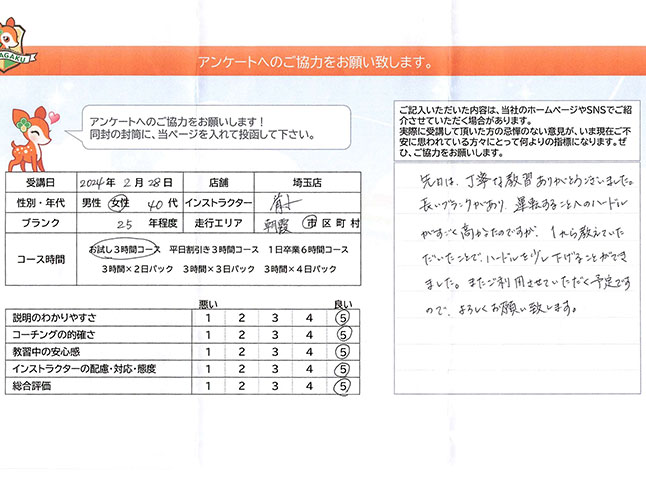 AGAKU
アンケートへのご協力をお願い致します。
アンケートへのご協力をお願いします！
同封の封筒に、当ページを入れて投函して下さい。
ご記入いただいた内容は、当社のホームページやSNSでご紹
介させていただく場合があります。
実際に受講して頂いた方の忌憚のない意見が、いま現在ご不
安に思われている方々にとって何よりの指標になります。ぜ
ひ、ご協力をお願いします。
受講日 2024年 2月 28日 店舗 埼玉店
性別・年代 男性 女性 40代 インストラクター
ブランク 25 年程度 走行エリア 朝霞 市区町村
コース時間 お試し3時間コース 平日割引き3時間コース 1日卒業6時間コース
3時間×2日パック 3時間×3日パック 3時間×4日パック
悪い 良い
説明のわかりやすさ 1 2 3 4 5
コーチングの的確さ 1 2 3 4 5
教習中の安心感 1 2 3 4 5
インストラクターの配慮・対応・態度 1 2 3 4 5
総合評価 1 2 3 4 5
先日は、丁寧な教習ありがとうございました。
長いブランクがあり、運転することへのハードル
がすごく高かったのですが、1から教えていた
だいたことで、ハードルを少し下げることができ
ました。またご利用させていただく予定です
ので、よろしくお願い致します。